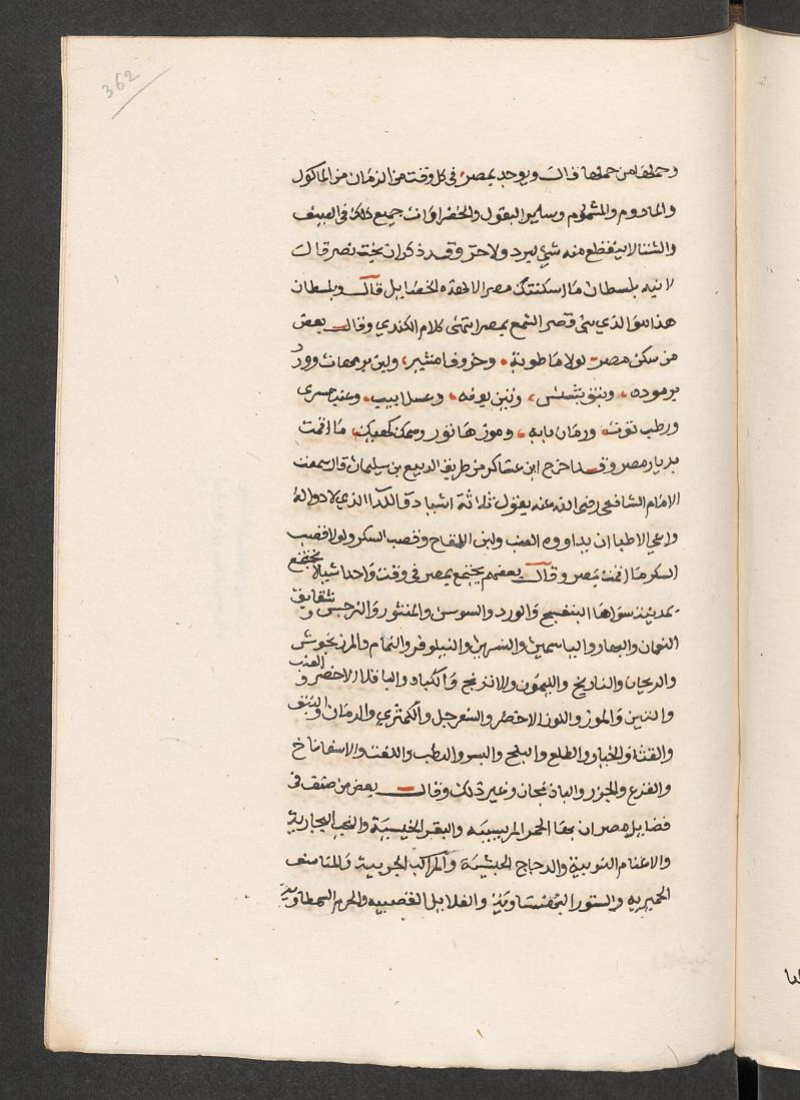 362
وحملها من حملها قال ويوجد بمصر في كل وقت من الزمان من الماكول
والمادوم والمشموم وساير البقول والخضراوات جميع ذلك في الصيف
والشتا لا ينقطع منه شي لبرد ولا حر وقد ذكر ان بخت نصر قال
لابنه بلسطان ما اسكنتك مصر الا لهذه الخصايل قال وبلسطان
هذا هو الذي بنى قصر الشمع بمصر انتهى كلام الكندي وقال بعض
من سكن مصر لولا ما طوبة وخروف امشير ولبن برمهات وورد
برموده ونبق بشنس وتين بونه وعسل ابيب وعنب مسرى
ورطب توت ورمان بابه وموز هاتور وسمك كيهك ما اقمت
بديار مصر وقد اخرج ابن عساكر من طريق الربيع بن سليمان قال سمعت
الامام الشافعي رضى الله عنه يقول ثلاثة اشيا دوا للدا الذي لا دوا له
واعي الاطبا ان يداووه العنب ولبن اللقاح وقصب السكر ولولا قصب
السكر ما اقمت بمصر وقال بعضهم يجتمع بمصر في وقت واحد اشيا لا تجتمع
بمدينة سواها البنفسج والورد والسوسن والمنثور والنرجس وشقايق
النعمان والبهار والياسمين والنسرين والنيلوفر والنمام والمرزنجوش
والريحان والنارنج والليمون والاترنج والكباد والباقلا الاخضر والعنب
والتين والموز واللوز الاخضر والسفرجل والكمثري والرمان والنبق
والقثا والخيار والطلع والبلح والبسر والرطب واللفت والاسفاناخ
والقرع والجزر والباذنجان وغير ذلك وقال بعض من صنف في
فضايل مصر ان بها الحمر المريسيه والبقر الخيسية والنجب البجارية
والاغنام النوبية والدجاج الحبشية والمراكب الحربية والمناصف
الحميريه والستور البهنساوية والغلايل القصبيه والحرم السمطاوية